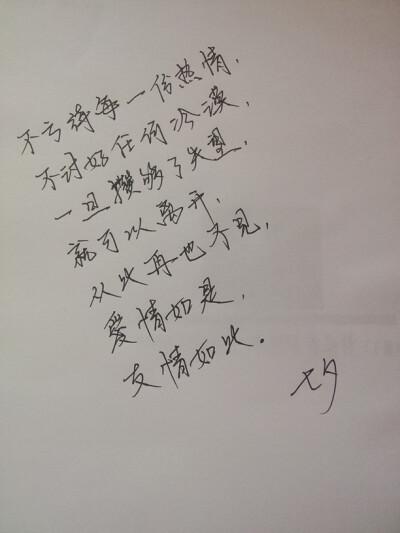 不亏待每一份热情，
不讨好任何冷漠，
一旦攒够了失望，
就可以离开，
从此再也不见，
爱情如是，
友情如此。
七夕